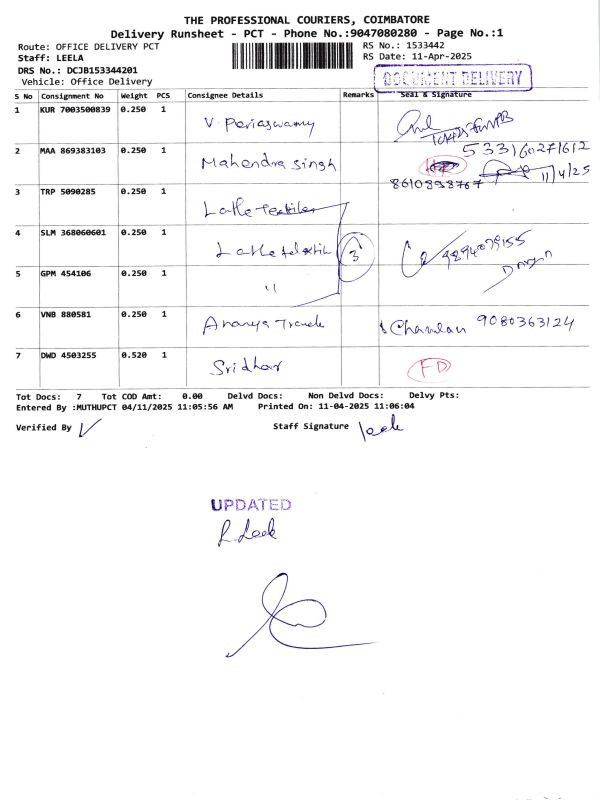 THE PROFESSIONAL COURIERS, COIMBATORE
Delivery Runsheet - PCT - Phone No.:9047080280 - Page No.:1
Route: OFFICE DELIVERY PCT RS No.: 1533442
Staff: LEELA RS Date: 11-Apr-2025
DRS No.: DCJB153344201
Vehicle: Office Delivery
DOCUMENT DELIVERY
S No Consignment No Weight PCS Consignee Details Remarks Seal & Signature
1 KUR 7003500839 0.250 1 V. Periaswamy
2 MAA 869383103 0.250 1 Mahendra Singh 533160271612
8610898767 11/4/25
3 TRP 5090285 0.250 1 Latle Textiles
4 SLM 368060601 0.250 1 Latle textile 3 9894079155
5 GPM 454106 0.250 1 "
6 VNB 880581 0.250 1 Ananya Trends 9080363124
7 DWD 4503255 0.520 1 Sridhar FD
Tot Docs: 7 Tot COD Amt: 0.00 Delvd Docs: Non Delvd Docs: Delvy Pts:
Entered By :MUTHUPCT 04/11/2025 11:05:56 AM Printed On: 11-04-2025 11:06:04
Verified By Staff Signature leela
UPDATED
R. Leela